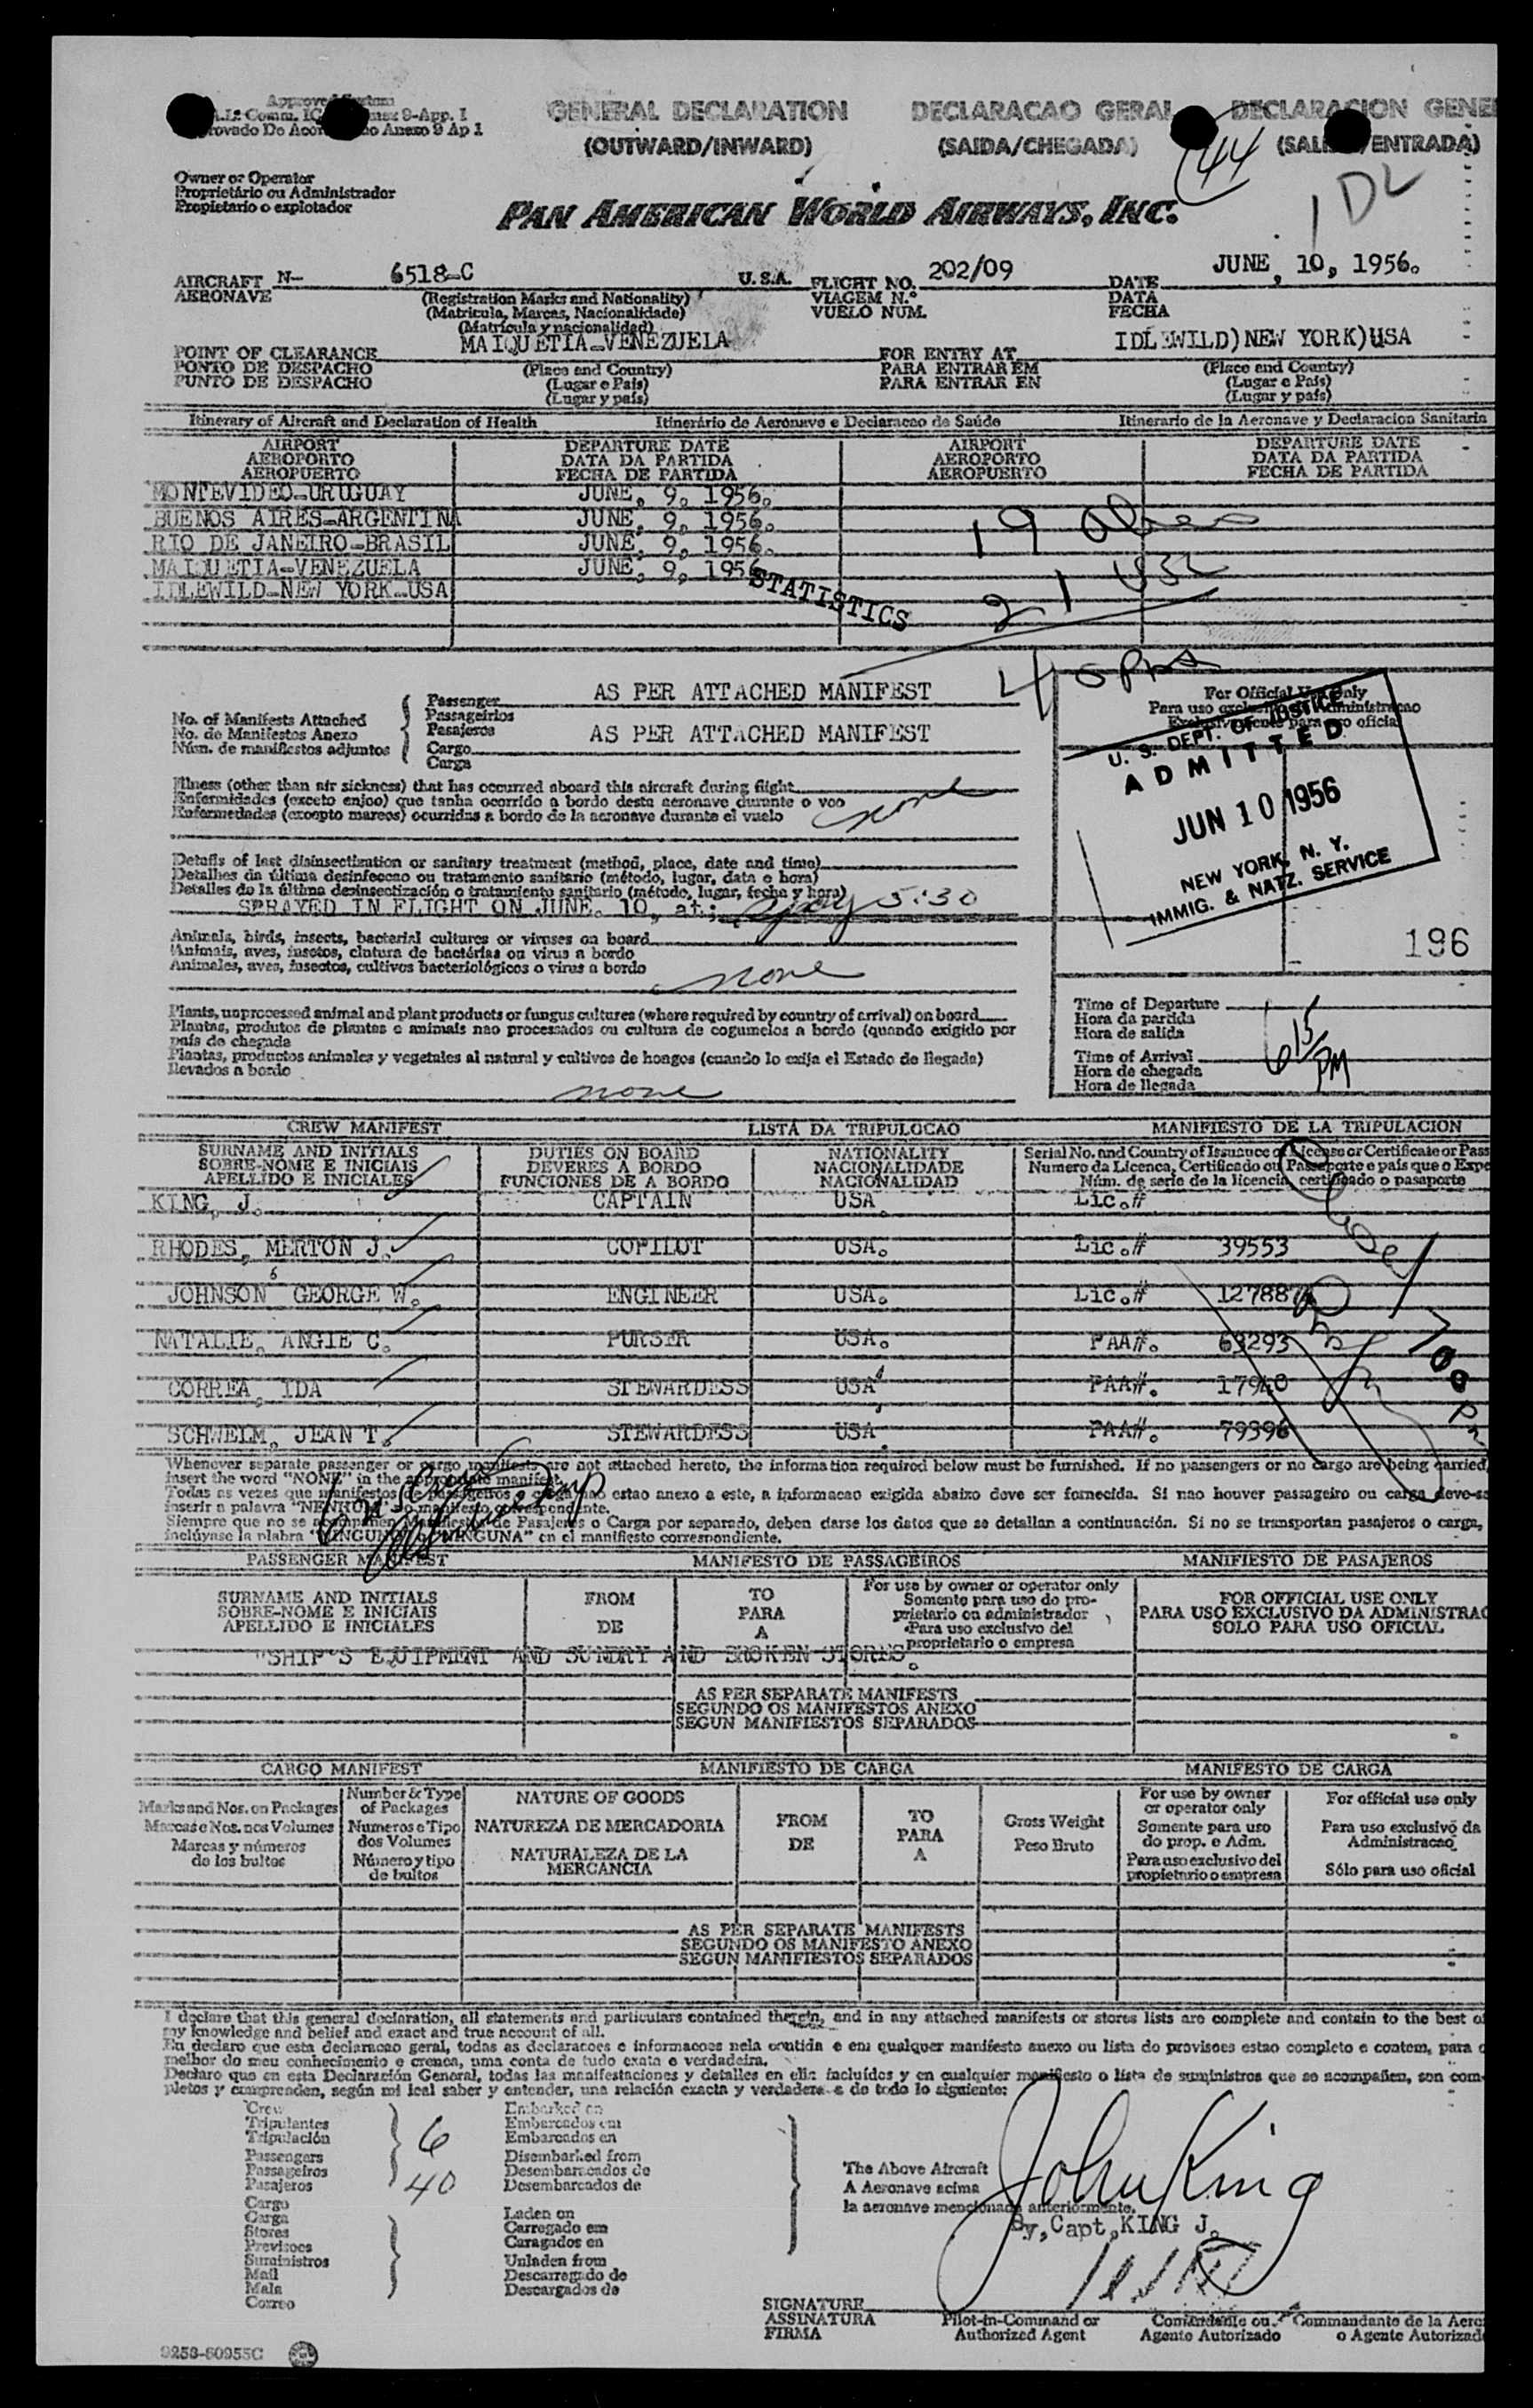 GENERAL DECLARATION DECLARACAO GERAL DECLARACION GENE
(OUTWARD/INWARD) (SAIDA/CHEGADA) ENTRADA)
44
1 DL
Owner or Operator
Proprietário ou Administrador
Propietario o explotador
PAN AMERICAN WORLD AIRWAYS, INC.
AIRCRAFT N- 6518-C U.S.A. FLIGHT NO. 202/09 DATE JUNE, 10, 1956.
AERONAVE (Registration Marks and Nationality) VIAGEM N.º DATA
(Matricula, Marcas, Nacionalidade) VUELO NUM. FECHA
(Matrícula y nacionalidad)
MAIQUETIA-VENEZUELA IDLEWILD)NEW YORK)USA
POINT OF CLEARANCE FOR ENTRY AT
PONTO DE DESPACHO (Place and Country) PARA ENTRAR EM (Place and Country)
PUNTO DE DESPACHO (Lugar e País) PARA ENTRAR EN (Lugar e País)
(Lugar y país) (Lugar y país)
Itinerary of Aircraft and Declaration of Health Itinerário de Aeronave e Declaracao de Saúde Itinerario de la Aeronave y Declaracion Sanitaria
AIRPORT DEPARTURE DATE AIRPORT DEPARTURE DATE
AEROPORTO DATA DA PARTIDA AEROPORTO DATA DA PARTIDA
AEROPUERTO FECHA DE PARTIDA AEROPUERTO FECHA DE PARTIDA
MONTEVIDEO-URUGUAY JUNE, 9, 1956.
BUENOS AIRES-ARGENTINA JUNE, 9, 1956.
RIO DE JANEIRO-BRASIL JUNE, 9, 1956.
MAIQUETIA-VENEZUELA JUNE, 9, 1956
IDLEWILD-NEW YORK-USA
STATISTICS
19
21
40
No. of Manifests Attached Passenger AS PER ATTACHED MANIFEST
No. de Manifestos Anexo Passageirios
Núm. de manifiestos adjuntos Pasajeros
Cargo AS PER ATTACHED MANIFEST
Carga
For Official Use Only
U. S. DEPT. OF JUSTICE
ADMITTED
JUN 10 1956
NEW YORK, N. Y.
IMMIG. & NATZ. SERVICE
196
Illness (other than air sickness) that has occurred aboard this aircraft during flight
Enfermidades (exceto enjoo) que tenha ocorrido a bordo desta aeronave durante o voo
Enfermedades (excepto mareos) ocurridas a bordo de la aeronave durante el vuelo
none
Details of last disinsectization or sanitary treatment (method, place, date and time)
Detalhes da última desinfeccao ou tratamento sanitário (método, lugar, data e hora)
Detalles de la última desinsectización o tratamiento sanitario (método, lugar, fecha y hora)
SPRAYED IN FLIGHT ON JUNE. 10, at: 5:30
Animals, birds, insects, bacterial cultures or viruses on board
Animais, aves, insetos, clutura de bactérias ou virus a bordo
Animales, aves, insectos, cultivos bacteriológicos o virus a bordo
none
Plants, unprocessed animal and plant products or fungus cultures (where required by country of arrival) on board
Plantas, produtos de plantas e animais nao processados ou cultura de cogumelos a bordo (quando exigido por
pais de chegada
Plantas, productos animales y vegetales al natural y cultivos de hongos (cuando lo exija el Estado de llegada)
llevados a bordo
none
Time of Departure
Hora da partida
Hora de salida
Time of Arrival 6 15 PM
Hora de chegada
Hora de llegada
CREW MANIFEST LISTA DA TRIPULOCAO MANIFIESTO DE LA TRIPULACION
SURNAME AND INITIALS DUTIES ON BOARD NATIONALITY Serial No. and Country of Issuance of License or Certificate or Pass
SOBRE-NOME E INICIAIS DEVERES A BORDO NACIONALIDADE Numero da Licenca, Certificado ou Passaporte e país que o Expe
APELLIDO E INICIALES FUNCIONES DE A BORDO NACIONALIDAD Núm. de serie de la licencia, certificado o pasaporte
KING, J. CAPTAIN USA Lic.#
RHODES, MERTON J. COPILOT USA. Lic.# 39553
JOHNSON GEORGE W. ENGINEER USA. Lic.# 12788
NATALIE, ANGIE C. PURSER USA. PAA#. 63293
CORREA, IDA STEWARDESS USA PAA#. 17940
SCHWELM, JEAN T. STEWARDESS USA. PAA#. 79396
Whenever separate passenger or cargo manifests are not attached hereto, the information required below must be furnished. If no passengers or no cargo are being carried,
insert the word "NONE" in the appropriate manifest.
Todas as vezes que manifestos de passageiros e carga nao estao anexo a este, a informacao exigida abaixo deve ser fornecida. Si nao houver passageiro ou carga deve-se
inserir a palavra manifesto correspondente.
Siempre que no se acompañen Manifiestos de Pasajeros o Carga por separado, deben darse los datos que se detallan a continuación. Si no se transportan pasajeros o carga,
inclúyase la plabra "NINGUNO" "NINGUNA" en el manifiesto correspondiente.
PASSENGER MANIFEST MANIFESTO DE PASSAGEIROS MANIFIESTO DE PASAJEROS
SURNAME AND INITIALS FROM TO For use by owner or operator only FOR OFFICIAL USE ONLY
SOBRE-NOME E INICIAIS DE PARA Somente para uso do pro- PARA USO EXCLUSIVO DA ADMINISTRAC
APELLIDO E INICIALES A prietario ou administrador SOLO PARA USO OFICIAL
Para uso exclusivo del
proprietario o empresa
"SHIP'S EQUIPMENT AND SUNDRY AND BROKEN STORES.
AS PER SEPARATE MANIFESTS
SEGUNDO OS MANIFESTOS ANEXO
SEGUN MANIFIESTOS SEPARADOS
CARGO MANIFEST MANIFIESTO DE CARGA MANIFESTO DE CARGA
Marks and Nos. on Packages Number & Type of Packages NATURE OF GOODS FROM TO Gross Weight For use by owner or operator only For official use only
Marcas e Nos. nos Volumes Numeros e Tipo dos Volumes NATUREZA DE MERCADORIA DE PARA Peso Bruto Somente para uso do prop. e Adm. Para uso exclusivo da Administracao
Marcas y números de los bultos Número y tipo de bultos NATURALEZA DE LA MERCANCIA A Para uso exclusivo del propietario o empresa Sólo para uso oficial
AS PER SEPARATE MANIFESTS
SEGUNDO OS MANIFESTO ANEXO
SEGUN MANIFIESTOS SEPARADOS
I declare that this general declaration, all statements and particulars contained therein, and in any attached manifests or stores lists are complete and contain to the best of
my knowledge and belief and exact and true account of all.
Eu declaro que esta declaracao geral, todas as declaracoes e informacoes nela contida e em qualquer manifesto anexo ou lista do provisoes estao completo e contem, para o
melhor do meu conhecimento e crenca, uma conta de tudo exata e verdadeira.
Declaro que en esta Declaración General, todas las manifestaciones y detalles en ella incluídos y en cualquier manifiesto o lista de suministros que se acompañen, son com-
pletos y comprenden, según mi leal saber y entender, una relación exacta y verdadera de todo lo siguiente:
Crew Embarked on
Tripulantes 6 Embarcados em
Tripulación Embarcados en
Passengers Disembarked from
Passageiros 40 Desembarcados de
Pasajeros Desembarcados de
Cargo
Carga Laden on
Stores Carregado em
Previsoes Caragados en
Suministros Unladen from
Mail Descarregado de
Mala Descargados de
Correo
The Above Aircraft
A Aeronave acima
la aeronave mencionada anteriormente.
John King
By, Capt, KING J.
SIGNATURE
ASSINATURA Pilot-in-Command or Comandante ou Commandante de la Aero
FIRMA Authorized Agent Agente Autorizado o Agente Autorizad
9258-60955C